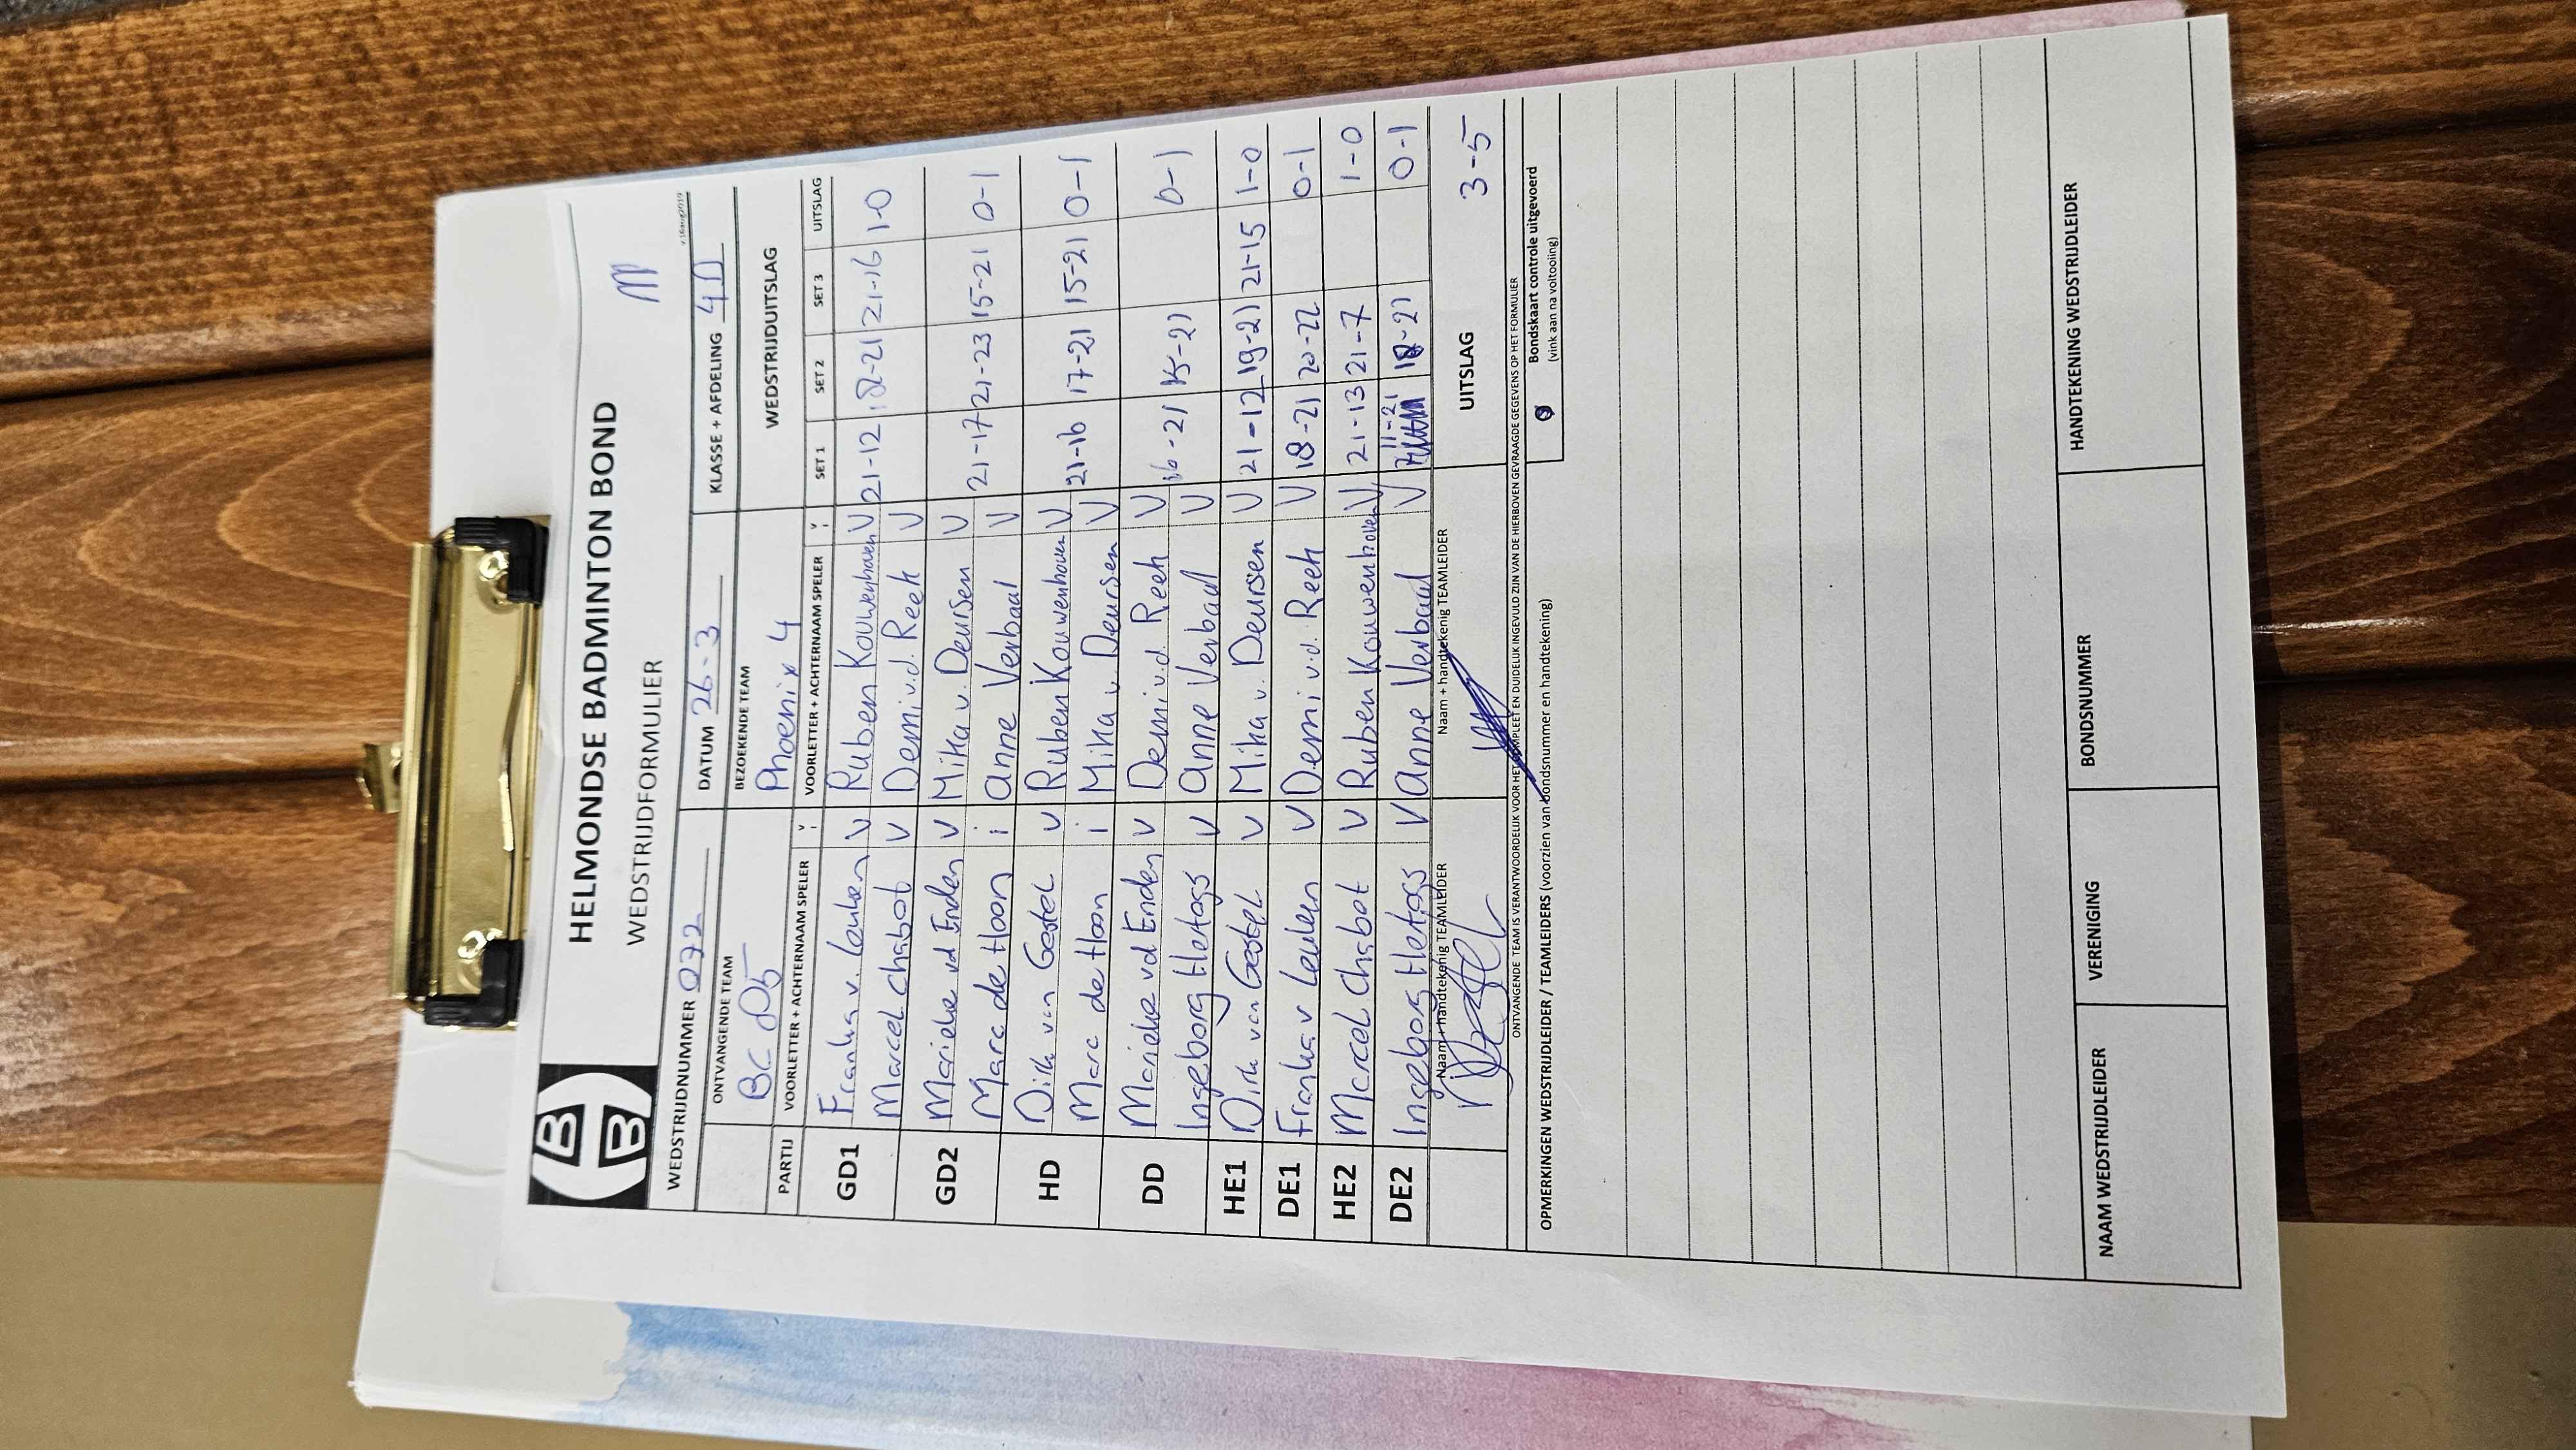 HELMONDSE BADMINTON BOND
WEDSTRIJDFORMULIER
v.16aug2019
WEDSTRIJDNUMMER 072 DATUM 26-3 KLASSE + AFDELING 4D
ONTVANGENDE TEAM BEZOEKENDE TEAM WEDSTRIJDUITSLAG
BC 85 Phoenix 4
PARTIJ VOORLETTER + ACHTERNAAM SPELER V/I VOORLETTER + ACHTERNAAM SPELER V/I SET 1 SET 2 SET 3 UITSLAG
GD1 Franka v. Leuken V Ruben Kouwenhoven V 21-12 18-21 21-16 1-0
Marcel Chabot V Demi v.d. Reek V
GD2 Marieke vd Enden V Mika v. Deursen V
Marc de Hoon i Anne Verbaal V 21-17 21-23 15-21 0-1
HD Dirk van Gestel V Ruben Kouwenhoven V
Marc de Hoon i Mika v Deursen V 21-16 17-21 15-21 0-1
DD Marieke vd Enden V Demi v.d. Reek V
Ingeborg Hertogs V Anne Verbaal V 16-21 15-21 0-1
HE1 Dirk van Gestel V Mika v. Deursen V 21-12 19-21 21-15 1-0
DE1 Franka v Leuken V Demi v.d. Reek V 18-21 20-22 0-1
HE2 Marcel Chabot V Ruben Kouwenhoven V 21-13 21-7 1-0
DE2 Ingeborg Hertogs V Anne Verbaal V 11-21 -21 0-1
Naam + handtekenig TEAMLEIDER Naam + handtekenig TEAMLEIDER UITSLAG 3-5
ONTVANGENDE TEAM IS VERANTWOORDELIJK VOOR HET COMPLEET EN DUIDELIJK INGEVULD ZIJN VAN DE HIERBOVEN GEVRAAGDE GEGEVENS OP HET FORMULIER
OPMERKINGEN WEDSTRIJDLEIDER / TEAMLEIDERS (voorzien van bondsnummer en handtekening) Bondskaart controle uitgevoerd
(vink aan na voltooiing)
NAAM WEDSTRIJDLEIDER VERENIGING BONDSNUMMER HANDTEKENING WEDSTRIJDLEIDER